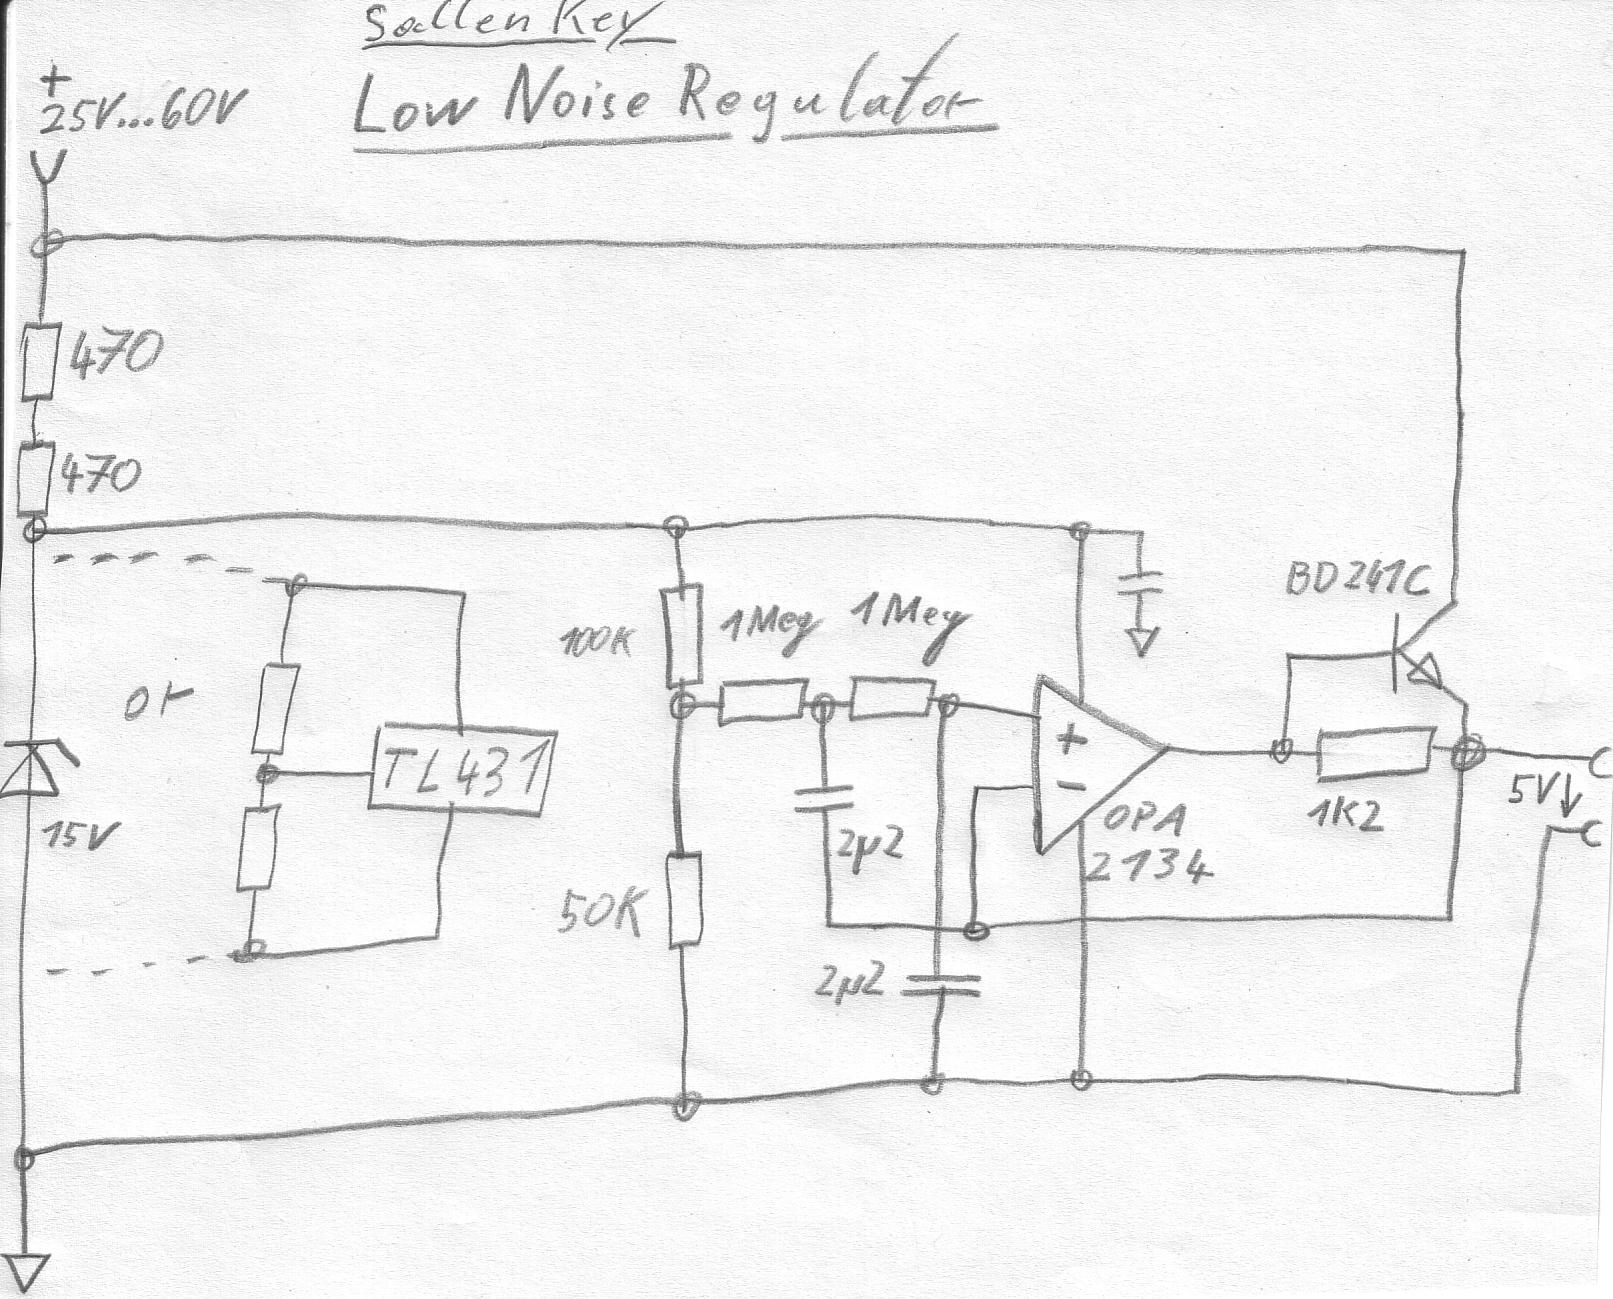 Sallen Key
Low Noise Regulator
+
25V...60V
470
470
BD241C
100K
1Meg
1Meg
or
TL431
+
-
15V
2µ2
OPA
2134
1K2
5V↓
50K
2µ2